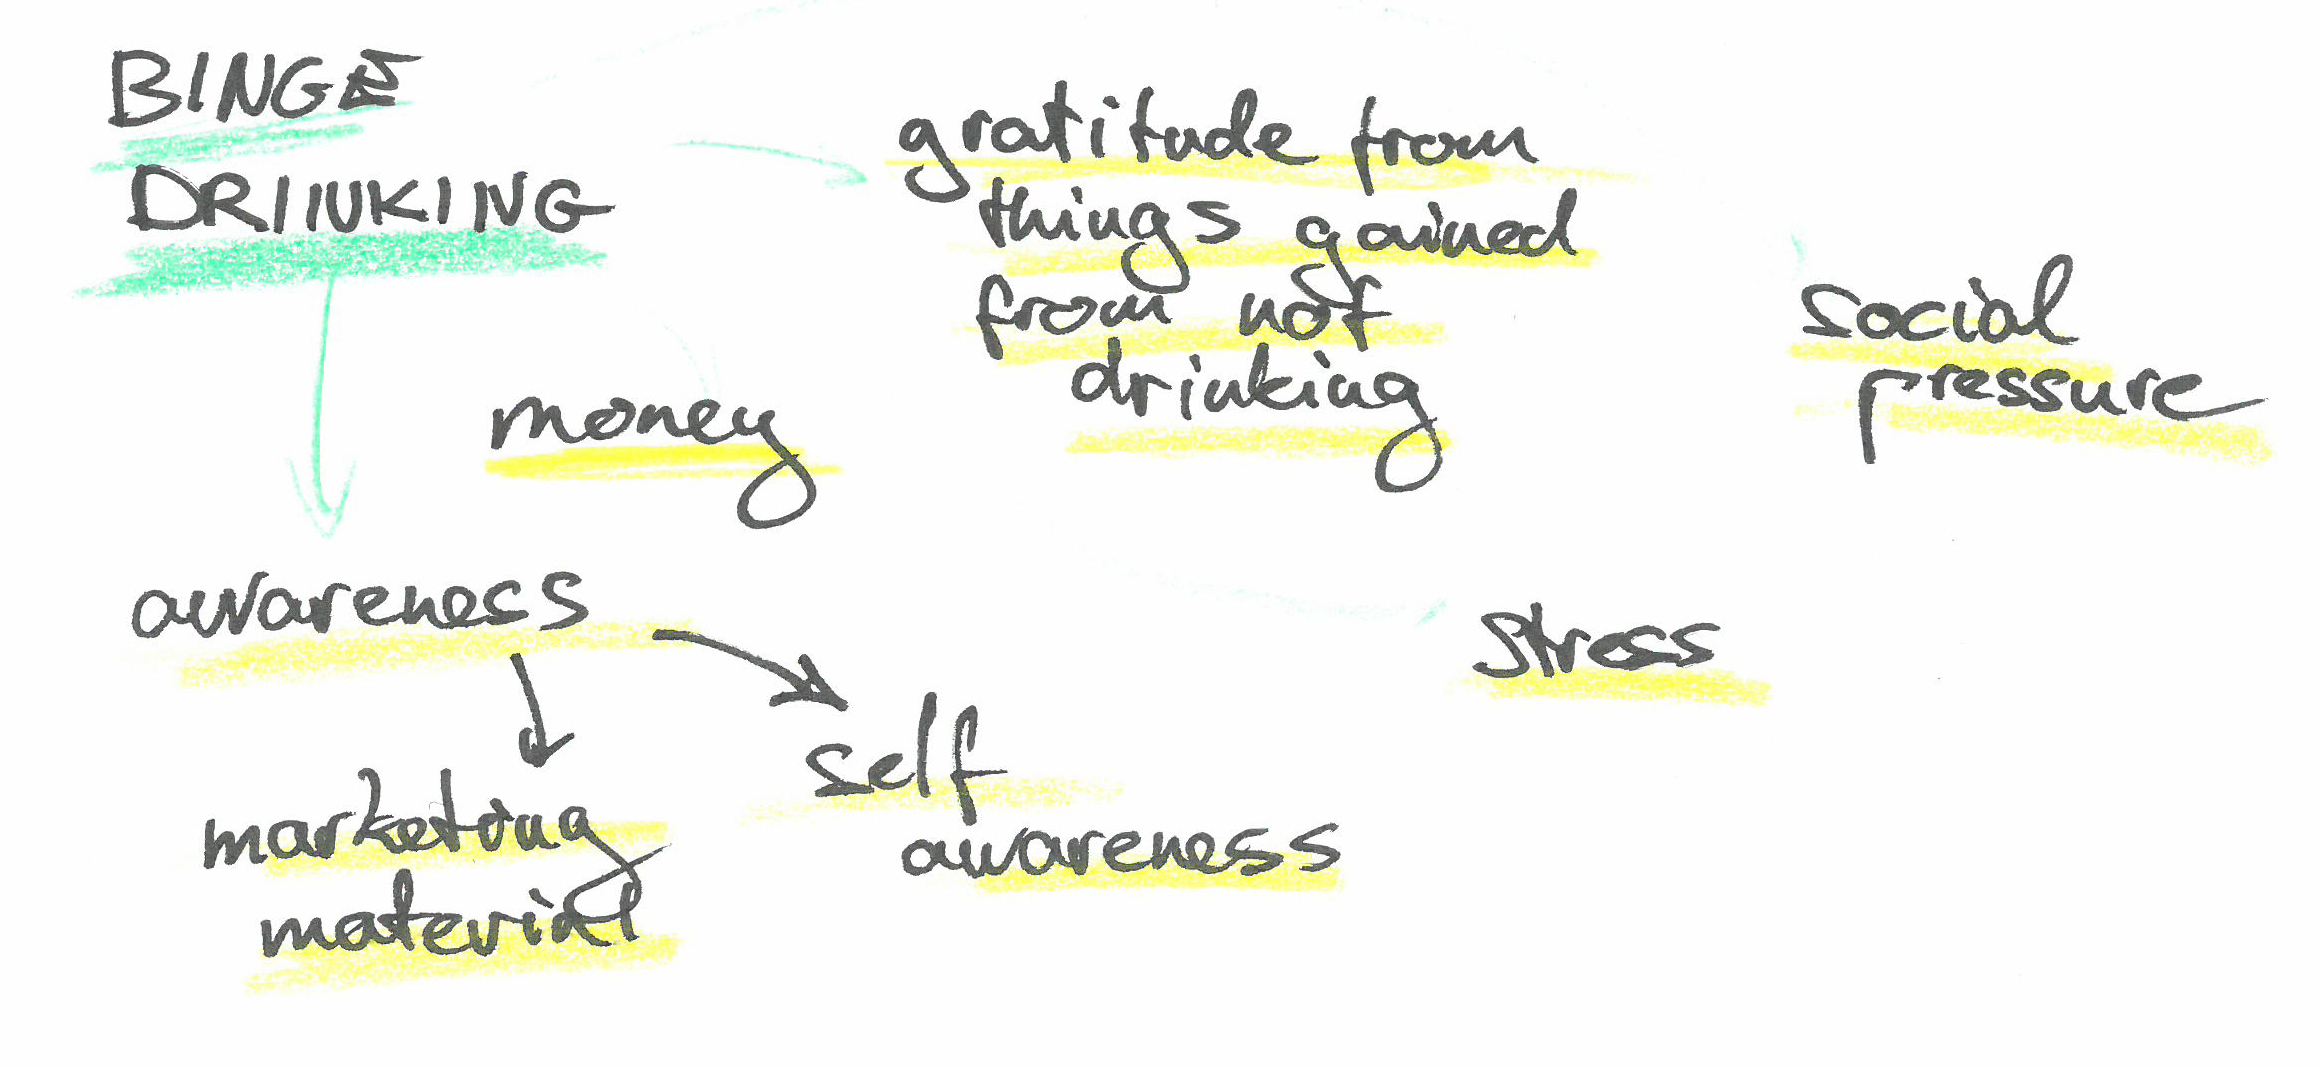 BINGE
DRINKING
gratitude from
things gained
from not
drinking
social
pressure
money
awareness
stress
self
awareness
marketing
material